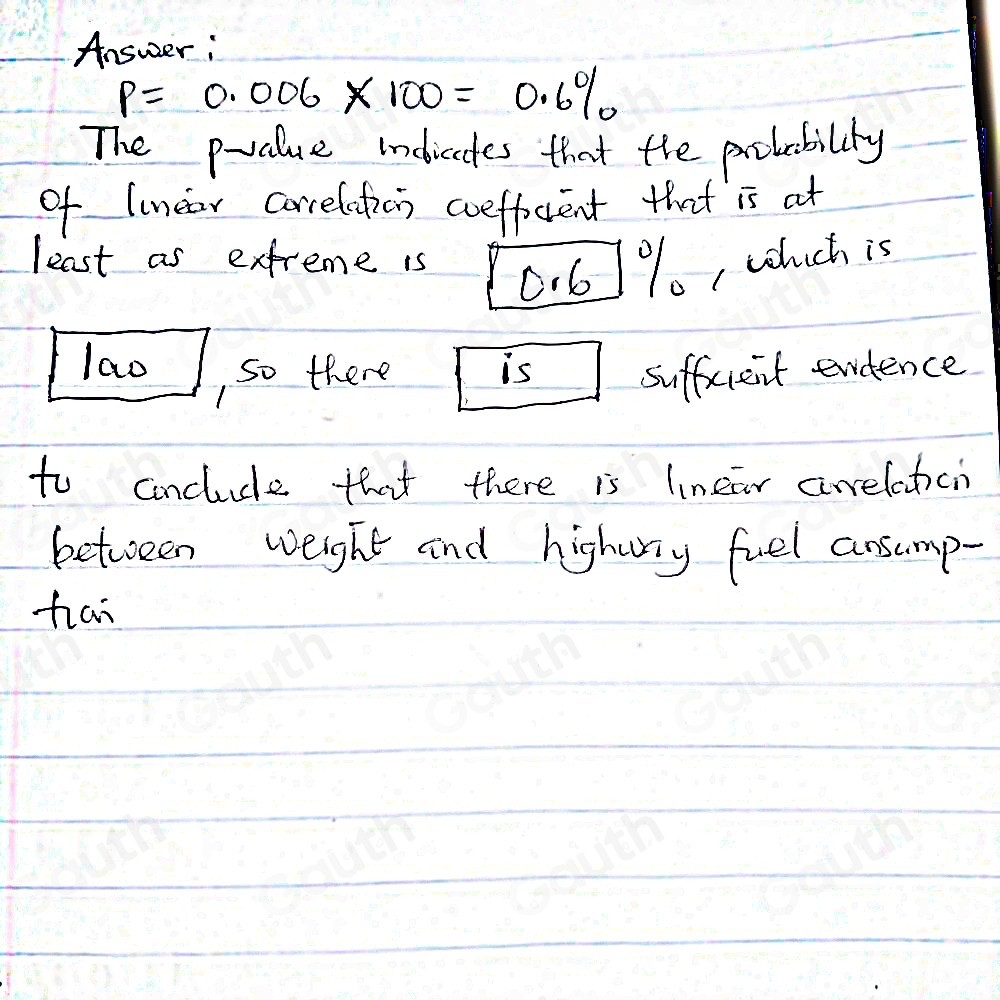 Answer :
P = 0.006 X 100 = 0.6%
The p-value indicates that the probability
of linear correlation coefficient that is at
least as extreme is 0.6 %, which is
low, so there is sufficient evidence
to conclude that there is linear correlation
between weight and highway fuel consump-
tion